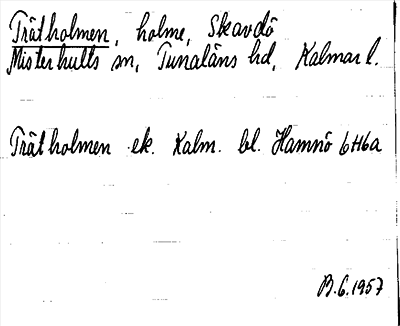 Trätholmen, holme, Skavdö
Misterhults sn, Tunaläns hd, Kalmar l.
Trätholmen ek. Kalm. bl. Hamnö 6H6a
B.G. 1957